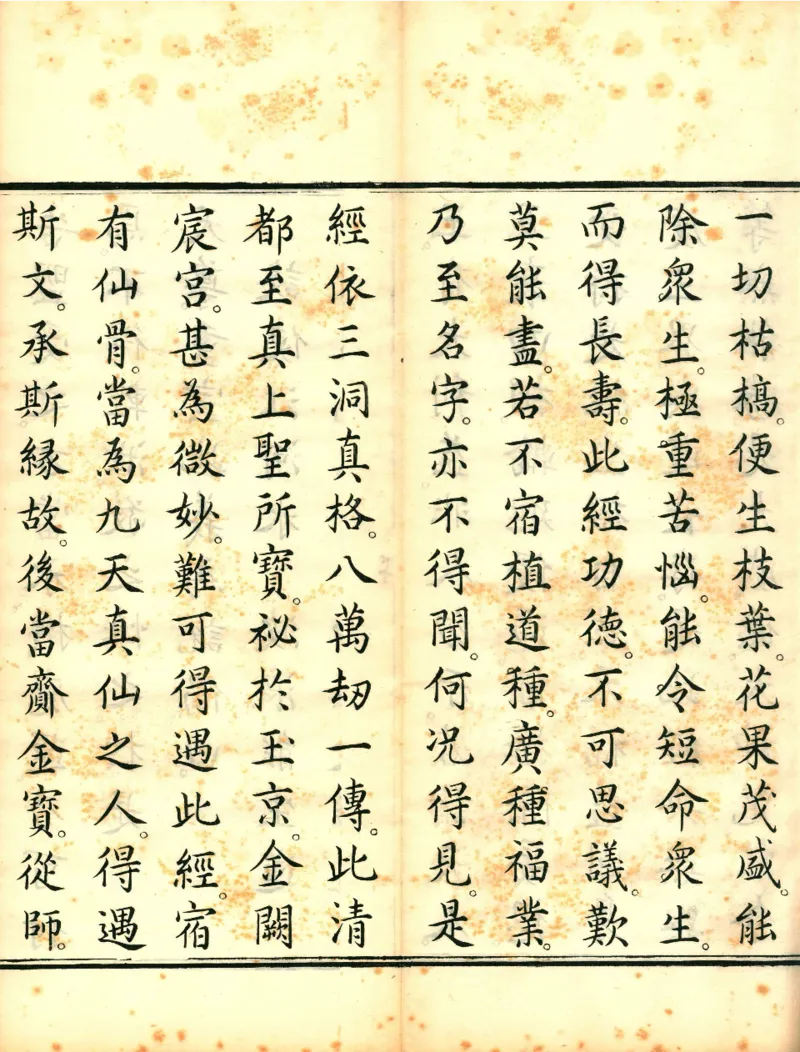 一切枯槁。便生枝葉。花果茂盛。能
除衆生。極重苦惱。能令短命衆生。
而得長壽。此經功德。不可思議。歎
莫能盡。若不宿植道種。廣種福業。
乃至名字。亦不得聞。何况得見。是
經依三洞真格。八萬劫一傳。此清
都至真上聖所寶。祕於玉京。金闕
宸宫。甚為微妙。難可得遇此經。宿
有仙骨。當為九天真仙之人。得遇
斯文。承斯緣故。後當齎金寶。從師。